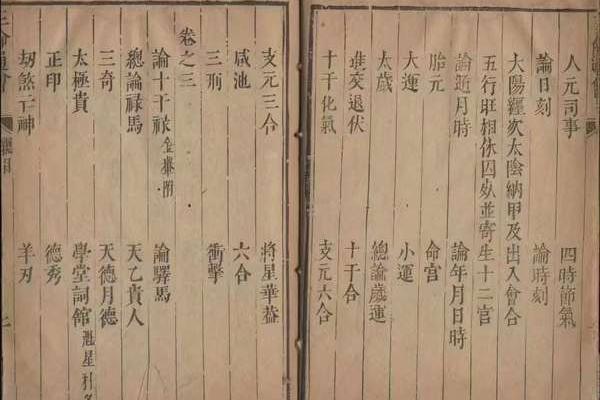 人元司事　四時節氣
論日刻　論時刻
太陽躔次太陰納甲及出入會合
五行旺相休囚死並寄生十二宮
論遁月時　論年月日時
胎元　命宮
大運　小運
太歲　總論歲運
進交退伏　十干合
十干化氣　支元六合
支元三合　將星華蓋
咸池　六合
三刑　衝擊
卷之三
論十干祿金轝附　論驛馬
總論祿馬　天乙貴人
三奇　天德月德
太極貴　學堂詞館魁星
正印　德秀
劫煞亡神　羊刃